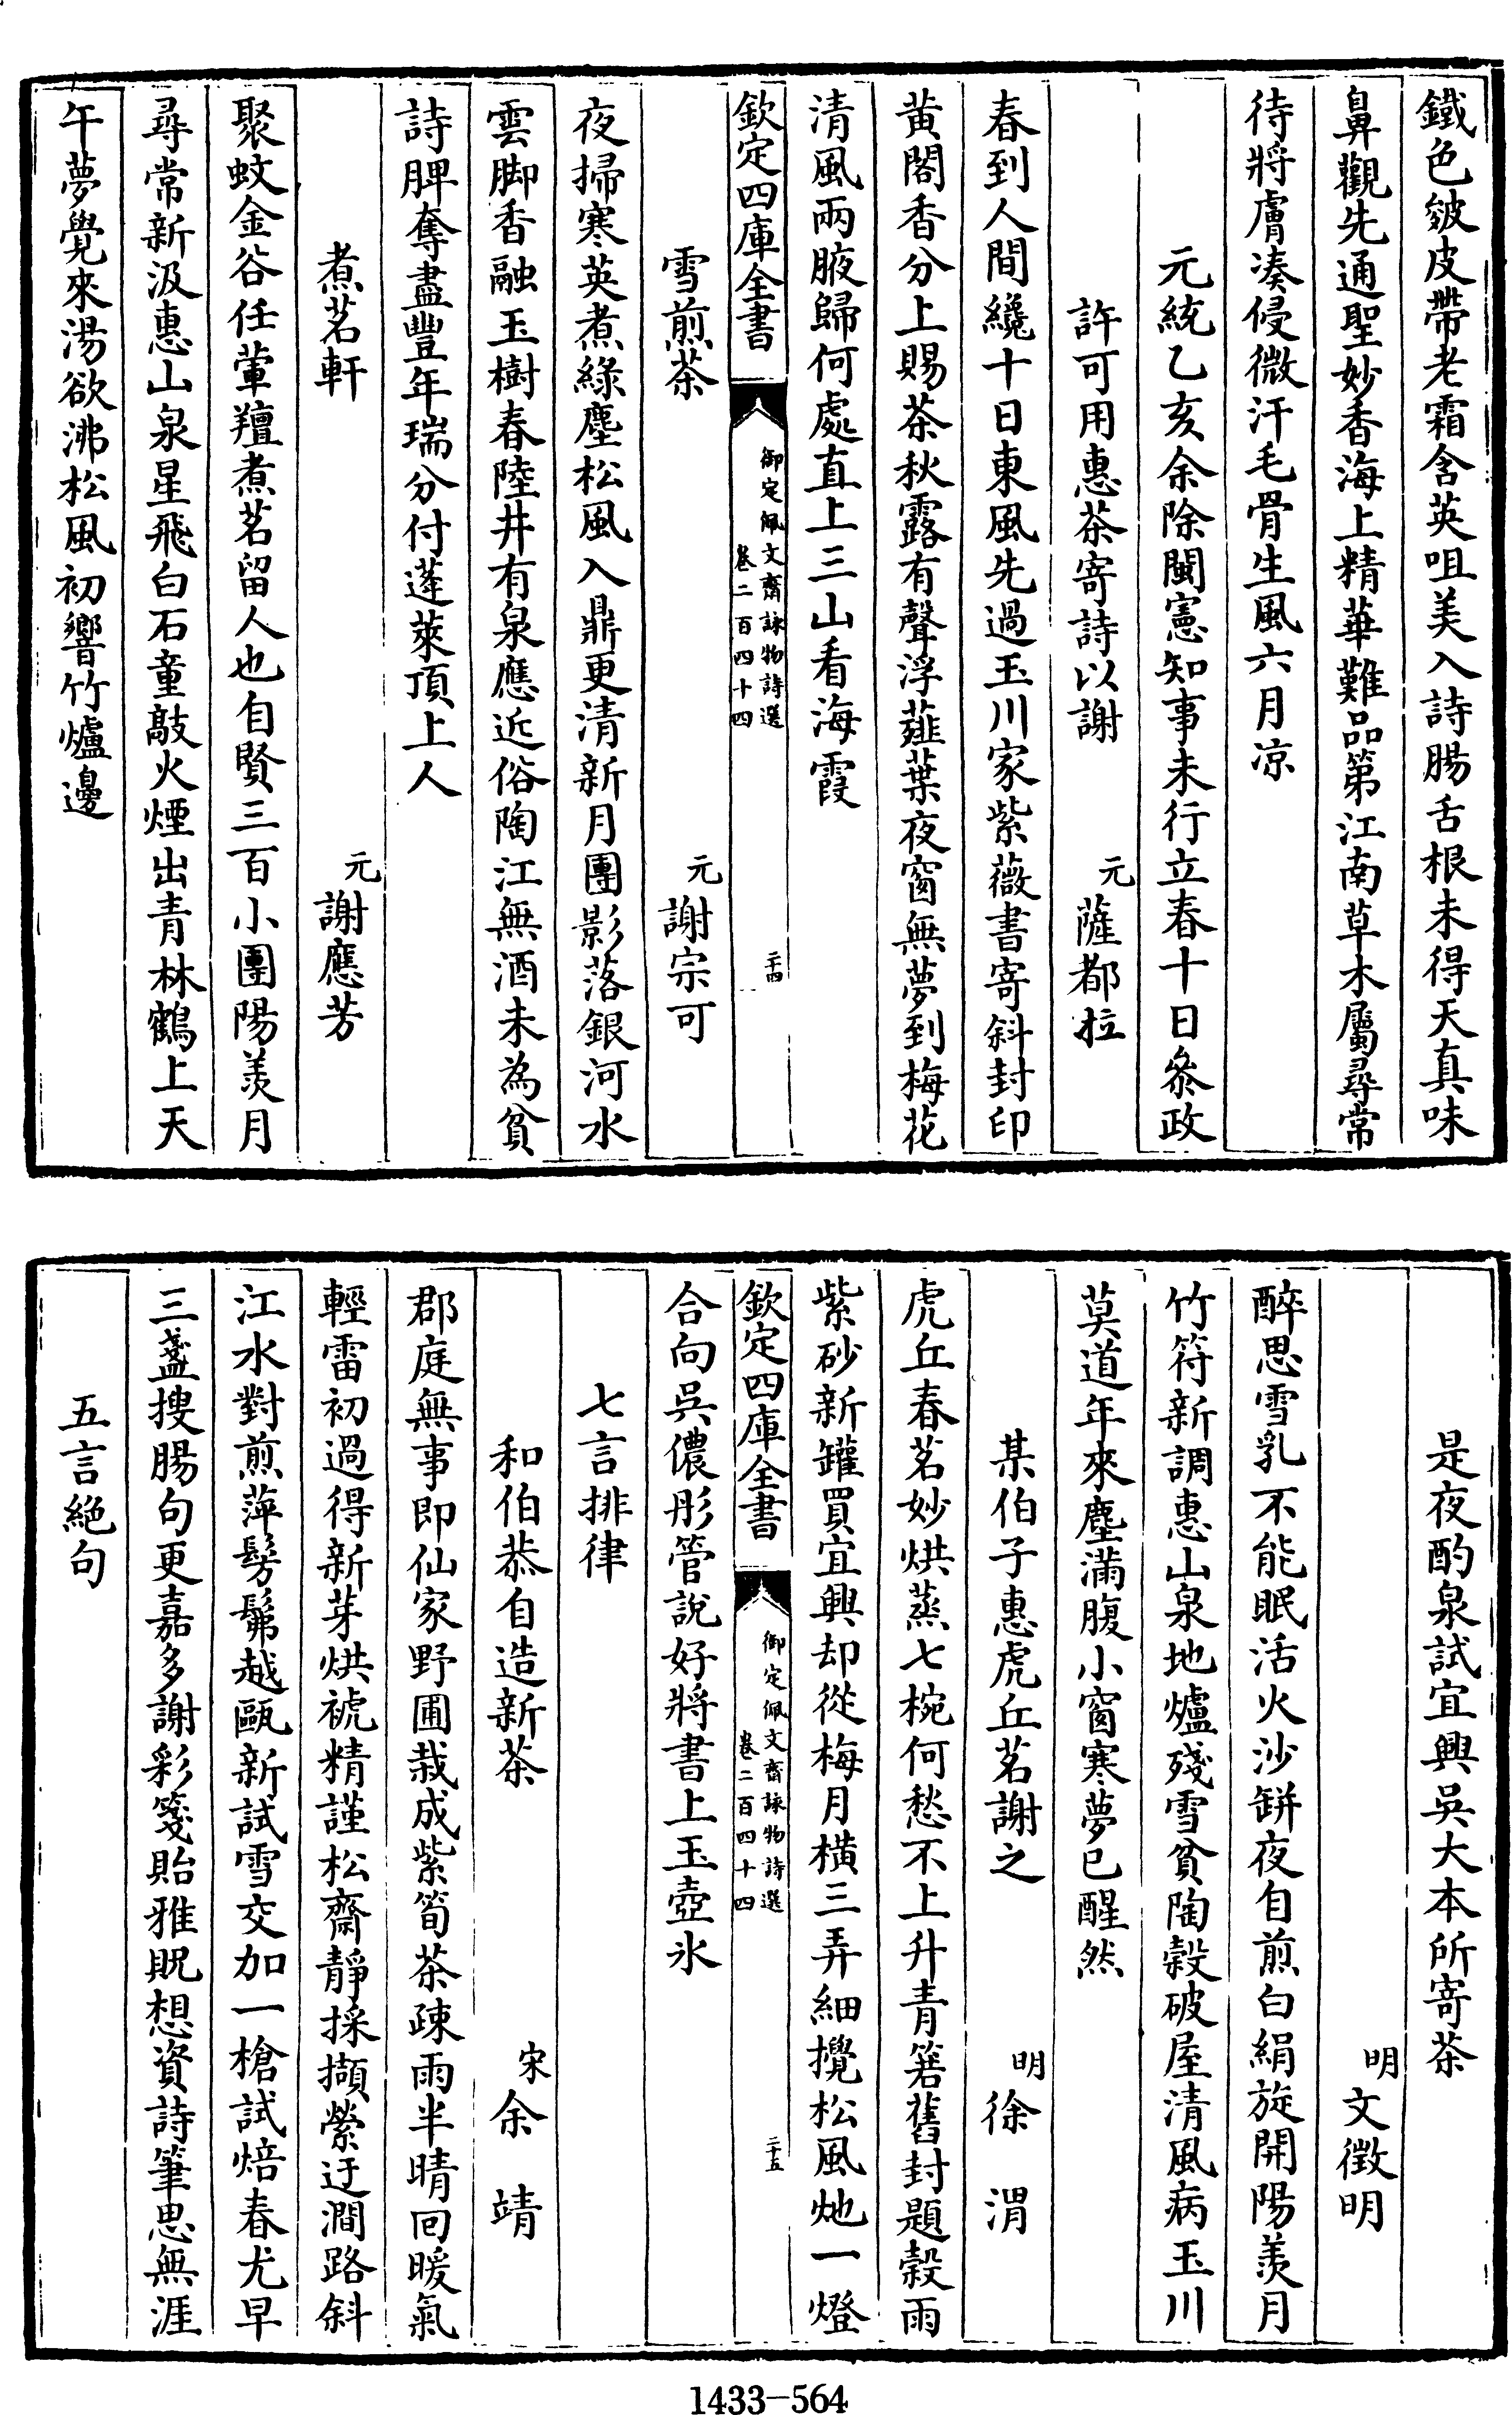 鐵色皴皮帶老霜含英咀美入詩腸舌根未得天真味
鼻觀先通聖妙香海上精華難品第江南草木屬尋常
待將膚凑侵微汗毛骨生風六月凉
元統乙亥余除閩憲知事未行立春十日叅政
許可用惠茶寄詩以謝 元 薩都拉
春到人間纔十日東風先過玉川家紫薇書寄斜封印
黄閣香分上賜茶秋露有聲浮薤葉夜窗無夢到梅花
清風兩腋歸何處直上三山看海霞
欽定四庫全書 御定佩文齋詠物詩選 卷二百四十四 二十四
雪煎茶 元 謝宗可
夜掃寒英煮綠塵松風入鼎更清新月團影落銀河水
雲脚香融玉樹春陸井有泉應近俗陶江無酒未為貧
詩脾奪盡豐年瑞分付蓬萊頂上人
煮茗軒 元 謝應芳
聚蚊金谷任葷羶煮茗留人也自賢三百小團陽羨月
尋常新汲惠山泉星飛白石童敲火煙出青林鶴上天
午夢覺來湯欲沸松風初響竹爐邊
是夜酌泉試宜興吳大本所寄茶
明 文徵明
醉思雪乳不能眠活火沙缾夜自煎白絹旋開陽羨月
竹符新調惠山泉地爐殘雪貧陶穀破屋清風病玉川
莫道年來塵滿腹小窗寒夢已醒然
某伯子惠虎丘茗謝之 明 徐渭
虎丘春茗妙烘蒸七椀何愁不上升青箬舊封題穀雨
紫砂新罐買宜興却從梅月横三弄細攪松風灺一燈
欽定四庫全書 御定佩文齋詠物詩選 卷二百四十四 二十五
合向吳儂彤管說好將書上玉壺氷
七言排律
和伯恭自造新茶 宋 余靖
郡庭無事即仙家野圃栽成紫筍茶疎雨半晴回暖氣
輕雷初過得新芽烘褫精謹松齋静採擷縈迂澗路斜
江水對煎萍髣髴越甌新試雪交加一槍試焙春尤早
三盞搜腸句更嘉多謝彩箋貽雅貺想資詩筆思無涯
五言絶句
1433-564